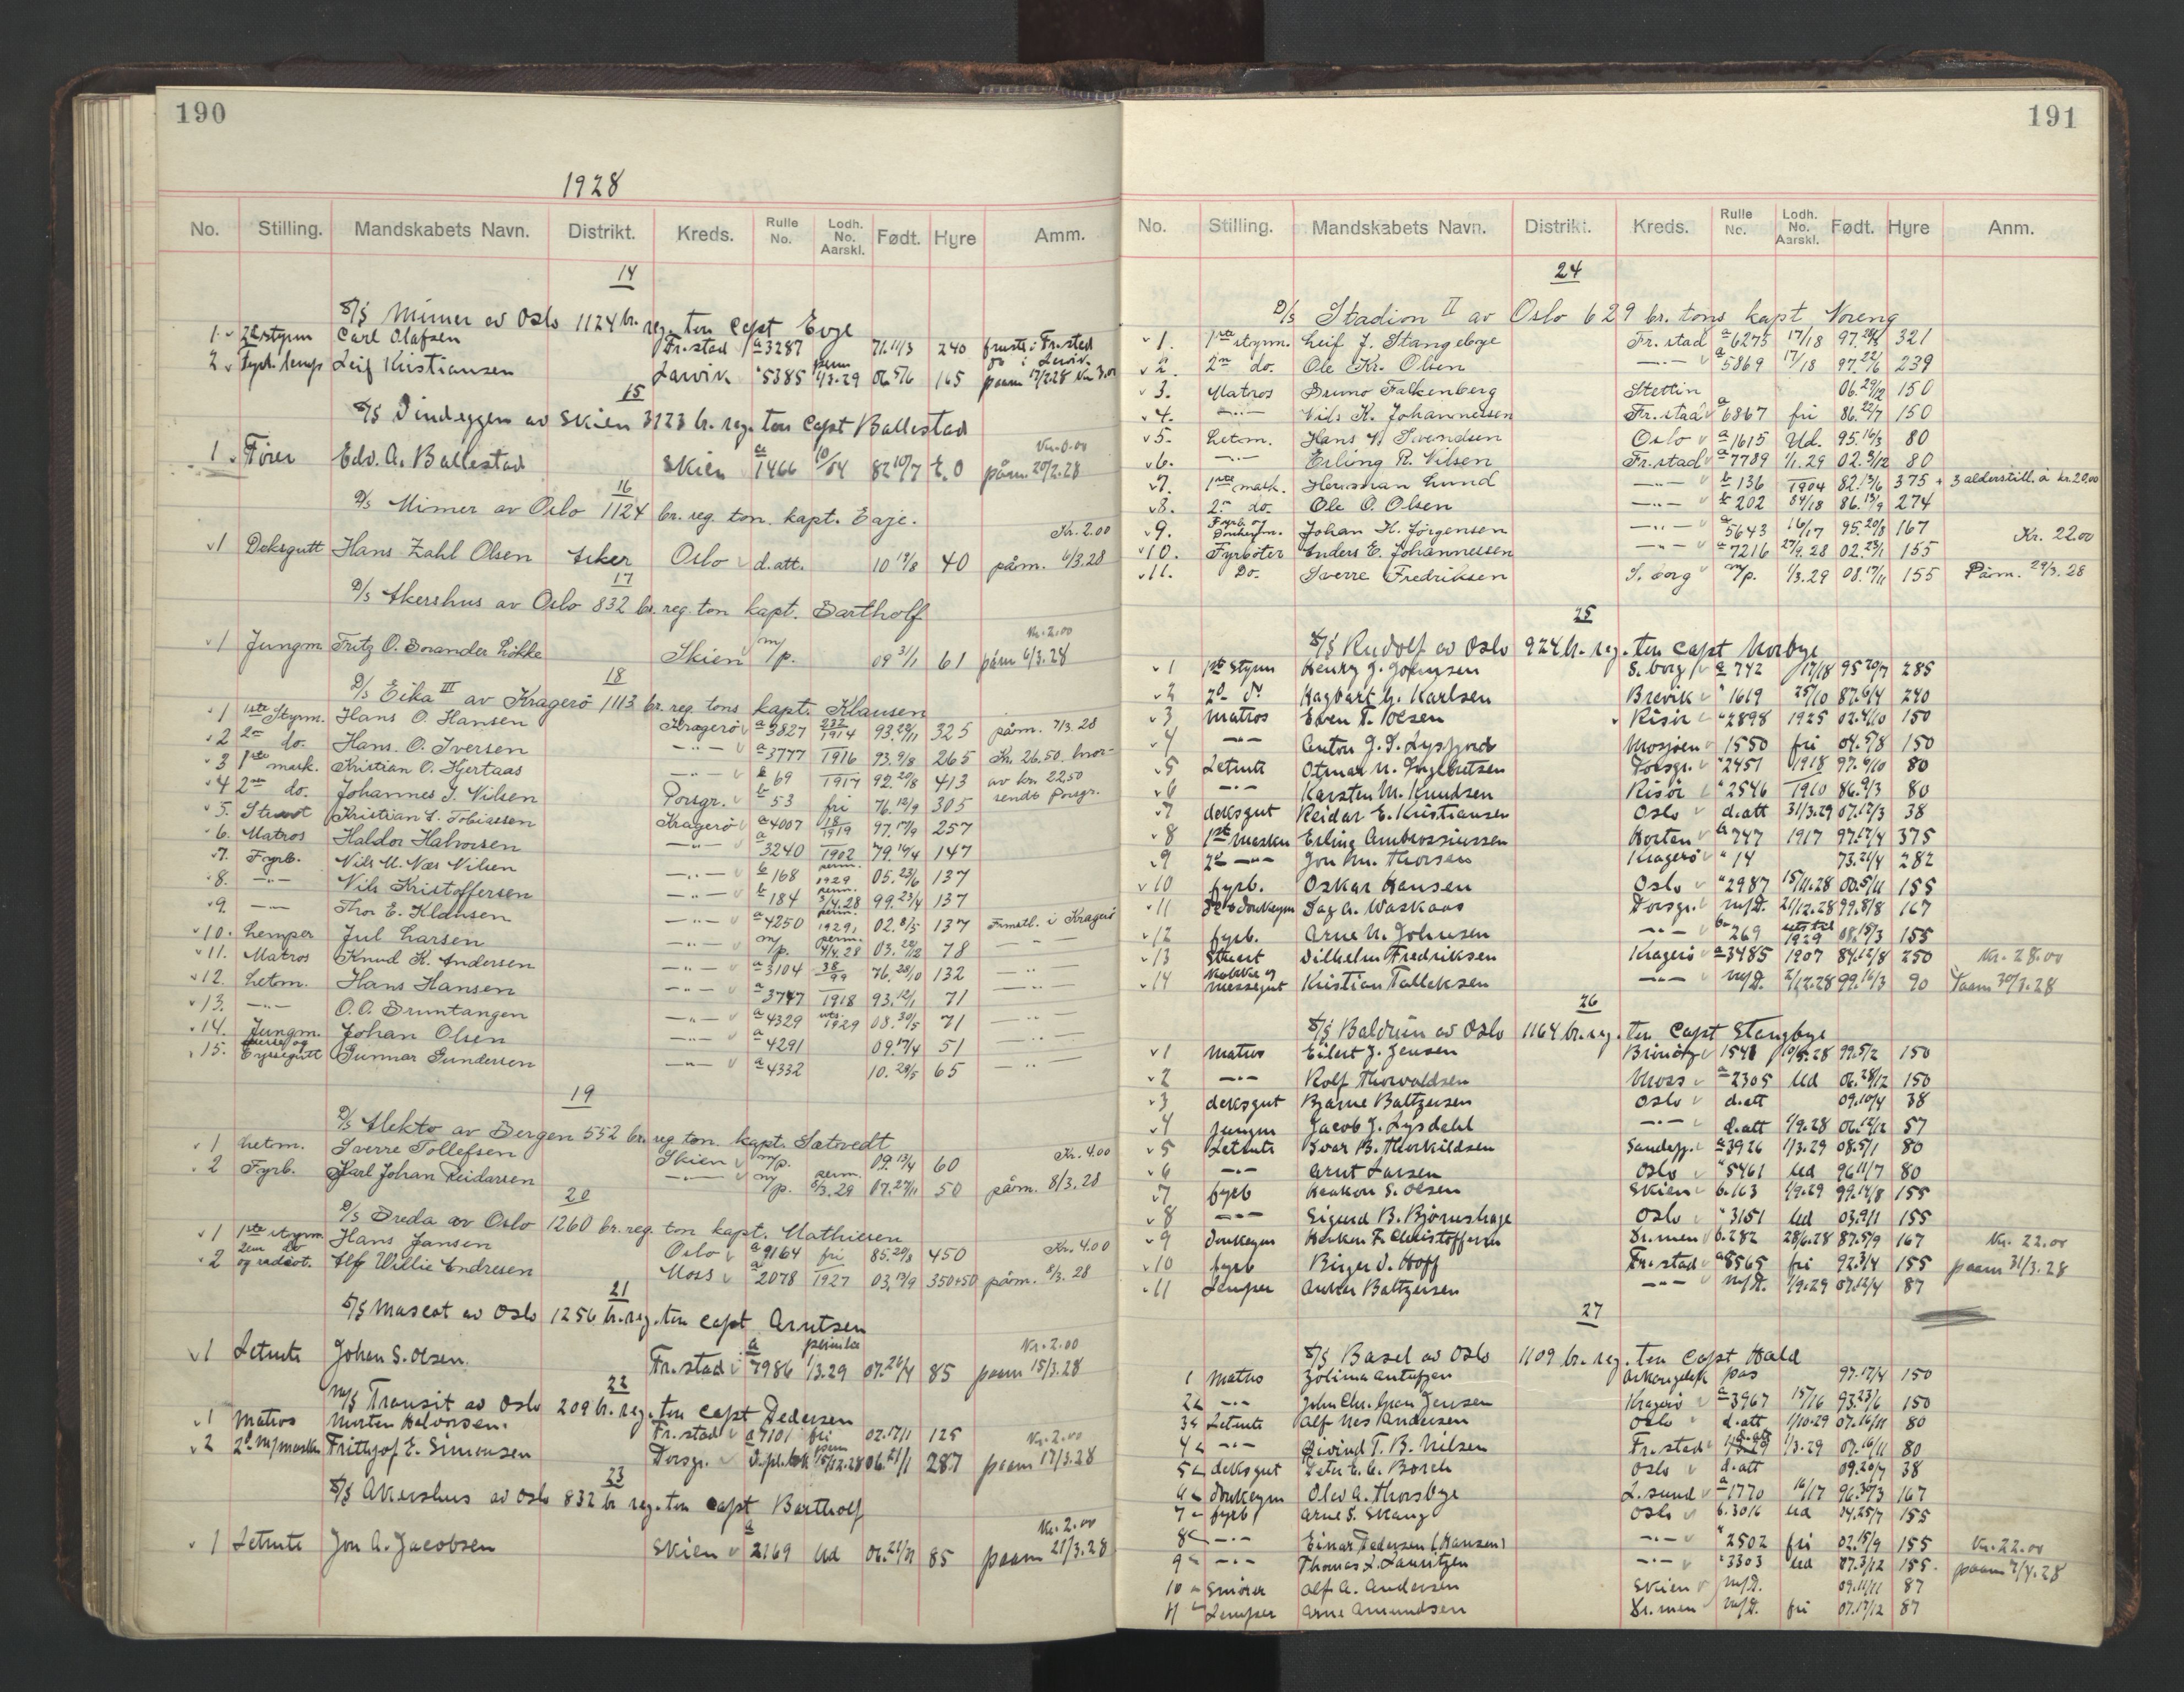 190
1928
No. Stilling. Mandskabets Navn. Distrikt. Kreds. Rulle No. Lodh. No. Aarskl. Født. Hyre Amm.
14
S/S Mimer av Oslo 1124 br. reg. ton Capt Evje
1. 2de styrm Carl Olafsen Fr.stad a 3287 71.11/3 240 i Fr.stad
2. Leif Kristiansen Larvik " 5385 perm 1/3.29 06.5/6 165 paam 17/2.28
15
S/S Dindeggen av Skien 3123 br. reg. ton Capt Ballestad
1. Fører Edv. A. Ballestad Skien a 1466 10/04 82 10/7 E.O påm. 20/2.28
Kr. 0.00
16
D/S Mimer av Oslo 1124 br. reg. ton. kapt. Eaje.
1 Deksgutt Hans Zahl Olsen Aker Oslo d.att. 10 19/8 40 påm. 6/3.28
Kr. 2.00
17
D/S Akershus av Oslo 832 br. reg. ton kapt. Bartholf
1 Jungm. Fritz O. Sorander Likke Skien m/p. 09 31/1 61 påm 6/3.28
Kr. 2.00
18
D/S Eika III av Kragerö 1113 br. reg. tons kapt. Klausen
1 1ste Styrm. Hans O. Hansen Kragerö a 3827 232/1914 93.29/11 325 påm. 7/3.28
2 2n do. Hans. O. Iversen —"— a 3777 1916 93.9/8 265 Kr. 26.50 hvor-
3 1ste mask. Kristian O. Hjertaas —"— b 69 1917 92.20/8 413 av kr. 22.50
4 2n do. Johannes J. Nilsen Porsgr. b 53 fri 76.12/9 305 sendt Porsgr.
5. Stuert Kristian L. Tobiassen Kragerö a 4007 18/1919 97.17/9 257
6. Matros Haldor Halvorsen —"— a 3240 1902 79.14/4 147
7. Fyrb. Nils M. Næs Nilsen —"— b 168 perm. 1929 05.23/6 137
8. —"— Nils Kristoffersen —"— b 184 perm. 3/4.28 99.23/4 137
9. —"— Thor E. Klausen —"— a 4250 perm. 1929 02.8/5 137 Frmstl. i Kragerö
10. Lemper Jul Larsen —"— m/p. perm. 4/4.28 03.28/12 78 —"—
11. Matros Knud K. Andersen —"— a 3104 38/99 76.28/10 132 —"—
12. Letm. Hans Hansen —"— a 3747 1918 93.12/1 71 —"—
13. —"— O.O. Bruntangen —"— a 4329 uts. 1929 08.30/5 71 —"—
14. Jungm. Johan Olsen —"— a 4291 09.17/4 51 —"—
15. Messe og Byssegutt Gunnar Gundersen —"— a 4332 10.29/5 65 —"—
19
D/S Alekto av Bergen 552 br. reg ton. kapt. Sætvedt
1 Letm. Sverre Tollefsen Skien m/p. 09.13/4 60 Kr. 4.00
2 Fyrb. Karl Johan Reidarsen —"— m/p. perm. 6/3.29 07.27/11 50 påm. 8/3.28
20
D/S Breda av Oslo 1260 br. reg. ton kapt. Mathiesen
1 1ste styrm Hans Jansen Oslo a 9164 fri 85.20/8 450 Kr. 4.00
2 2en do og radiot. Alf Willie Endresen Moss a 2078 1927 03.19/9 350+50 påm. 8/3.28
21
S/S Mascot av Oslo 1256 br. reg. ton capt Arntsen
1 Letmts Johan S. Olsen. Fr.stad a 7986 1/3.29 07.20/4 85 paam 15/3.28
Kr. 2.00
22
M/S Transit av Oslo 209 br. reg. ton capt Pedersen
1 Matros Morten Halvorsen. Fr.stad a 7101 fri 02.17/11 125 Kr. 2.00
2 2d M/maskn Frithjof E. Simonsen Porsgr. 15/12.28 06.21/1 287 paam 17/3.28
23
S/S Akershus av Oslo 832 br reg. ton capt Bartholf
1 Letmts Jon A. Jacobsen Skien a 2169 Ud 06.21/11 85 paam 21/3.28
Kr. 2.00
191
No. Stilling. Mandskabets Navn. Distrikt. Kreds. Rulle No. Lodh. No. Aarskl. Født. Hyre Anm.
24
D/S Stadion II av Oslo 629 br. tons kapt Noreng
1. 1ste styrm. Leif J. Stangebye Fr.stad a 6275 17/18 97.28/5 321
2. 2n do. Ole Kr. Olsen —"— a 5869 17/18 97.22/6 239
3. Matros Bruno Falkenberg Stettin 06.29/12 150
4. —"— Nils K. Johannessen Fr.stad a 6867 fri 86.22/7 150
5. Letm. Hans H. Svendsen Oslo a 1615 Ud. 95.16/3 80
6. —"— Erling R. Nilsen Fr.stad a 7789 1/1.29 02.5/12 80
7. 1ste mask. Herman Lund —"— b 136 1904 82.13/6 375 + 3 alderstill. à kr. 20.00
8. 2n do. Ole O. Olsen —"— b 202 04/18 86.13/9 274
9. Fyrb. og Donkeym. Johan K. Jørgensen —"— a 5643 16/17 95.20/8 167 Kr. 22.00
10. Fyrböter Anders E. Johannessen —"— a 7216 27/9.28 02.23/1 155
11. Do. Sverre Fredriksen S. borg m/p. 1/3.29 08.17/11 155 Påm. 29/3.28
25
S/S Rudolf av Oslo 924 br. reg. ton Capt Norbye
1 1ste Styrm Henry J. Johnsen S. borg a 742 17/18 95 20/7 285
2 2d do Hagbart G. Karlsen Brevik " 1619 25/10 87.6/4 240
3 Matros Even T. Olsen Risör " 2898 1925 02.4/10 150
4 —"— Anton J. S. Lysfjord Mosjøen 1550 fri 04.5/8 150
5 Letmts Otmar N. Ingebretsen Porsgr. " 2451 1918 97.6/10 80
6 —"— Karsten M. Knudsen Risör " 2546 1910 86.9/3 80
7 deksgut Reidar E. Kristiansen Oslo d.att 31/3.29 07.12/3 38
8 1ste Maskn Erling Ambrossiussen Horten b 747 1917 97.17/4 375
9 2d —"— Jon Thorsen Kragerö " 14 73.21/4 282
10 fyrb. Oskar Hansen Oslo " 2987 15/11.28 00.5/11 155
11 Donkeym Dag A. Waskaas Porsgr. m/p. 21/12.28 99.8/8 167
12 fyrb. Arne N. Johnsen —"— 269 1929 08.18/3 155
13 Stuert Vilhelm Fredriksen Kragerö a 3485 1907 84.12/8 250 Kr. 28.00
14 Kokke og messegut Kristian Tallaksen —"— m/p. 2/12.28 99.16/3 90 Paam 30/3.28
26
S/S Balduin av Oslo 1164 br. reg. ton Capt Stangbye
1 Matros Eilert J. Jensen 1541 10/5.28 99.5/2 150
2 —"— Rolf Thorvaldsen Moss a 2305 Ud 06.28/12 150
3 deksgut Bjarne Baltzersen Oslo d.att 09.10/4 38
4 jungm Jacob J. Lysdahl —"— d.att 1/9.28 06.12/12 57
5 Letmts Ivar B. Thorkildsen Sandefj. a 3926 1/3.29 08.5/1 80
6 —"— Arnt Larsen Oslo " 5461 Ud 96 11/7 80
7 fyrb Haakon S. Olsen Skien b. 163 1/9.29 99.14/8 155
8 —"— Sigurd B. Bjørnshage Oslo " 3151 Ud 03.9/11 155
9 Donkeym Haakon F. Christoffersen Dr.men b. 282 28/6.28 87.5/9 167 Kr. 22.00
10 fyrb Birger I. Hoff Fr.stad a 8565 fri 92.3/4 155 paam 31/3.28
11 Lemper Anker Baltzersen —"— m/p. 1/9.29 07.12/4 87
27
S/S Basel av Oslo 1109 br. reg. ton Capt Hald
1 Matros Arkangelsk pas 97.17/4 150
2 —"— John Chr. Gran Jensen Kragerö a 3967 15/16 93.23/6 150
3 Letmts Alf Nes Andersen Oslo d.att 1/10.29 07.16/11 80
4 —"— Øivind T. B. Nilsen Fr.stad d.att 1/3.29 07.16/11 80
5 deksgut Peter C. C. Borch Oslo d.att 09.20/7 38
6 Donkeym Olav A. Thorsbye L.sund a 1770 16/17 96.30/3 167
7 fyrb Arne S. Skaug Oslo b. 3016 Ud 04.25/7 155
8 —"— Einar Pedersen (Hansen) —"— " 2502 fri 02.15/9 155 Kr. 22.00
9 —"— Thomas L. Lauritzen —"— " 3303 Ud 07.3/12 155. paam 2/4.28
10 Smører Alf A. Andersen Skien m/p. 09.11/11 87
11 Lemper Arne Amundsen Dr.men m/p. fri 07.17/12 87